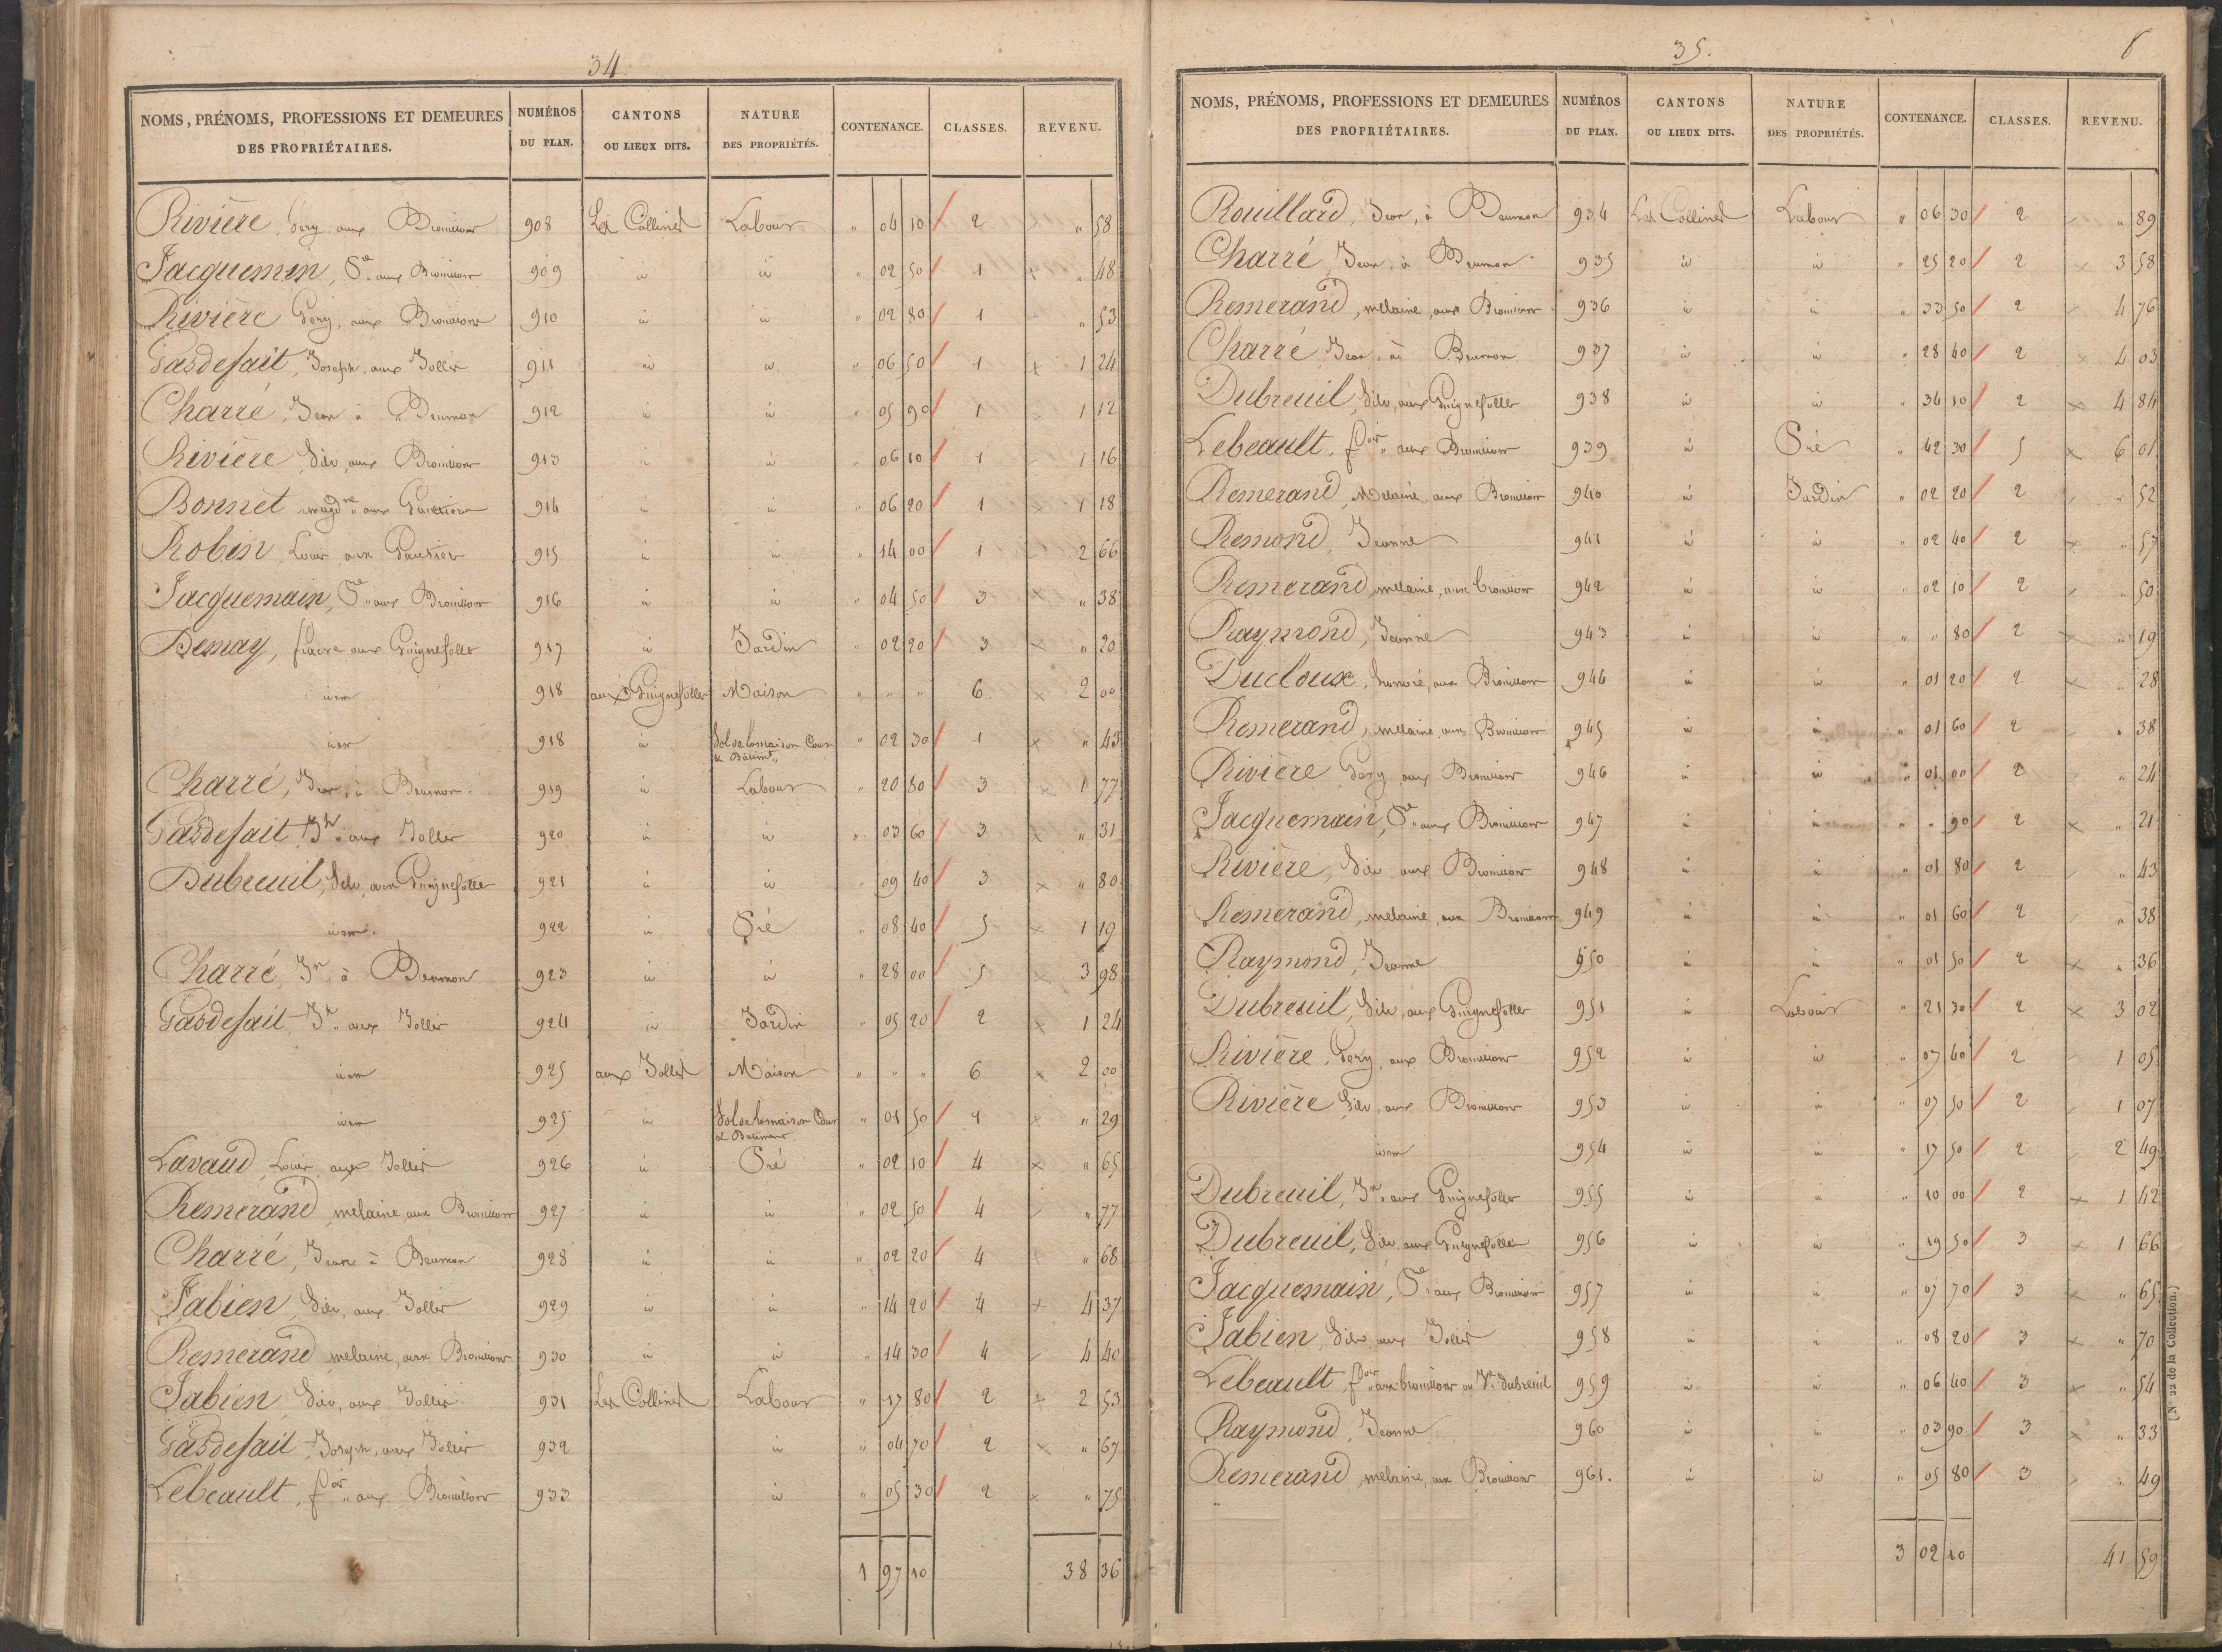 34.
NOMS, PRÉNOMS, PROFESSIONS ET DEMEURES DES PROPRIÉTAIRES. NUMÉROS DU PLAN. CANTONS OU LIEUX DITS. NATURE DES PROPRIÉTÉS. CONTENANCE. CLASSES. REVENU.
Rivière, Gery, aux Brouillons 908 Les Collines Labour " 04 10 2 " 58
Jacquemin, Ve aux Brouillons 909 id id " 02 50 1 " 48
Rivière Gery, aux Brouillons 910 id id " 02 80 1 " 53
Pasdefait, Joseph, aux Jollis 911 id id " 06 50 1 1 24
Charré, Jean à Beumon 912 id id " 05 90 1 1 12
Rivière Silv, aux Brouillons 913 id id " 06 10 1 1 16
Bonnet magdne aux 914 id id " 06 20 1 1 18
Robin, Louis, aux Gautiers 915 id id " 14 00 1 2 66
Jacquemain, Ve aux Brouillons 916 id id " 04 50 3 " 38
Demay, fiacre aux Guignefolles 917 id Jardin " 02 20 3 " 20
idem 918 aux Guignefolles Maison " " " 6 2 00
idem 918 id Sol de la maison Cour & Batimt " 02 30 1 " 43
Charré, Jean, à Beumon 919 id Labour " 20 80 3 1 77
Pasdefait, Jh aux Jollis 920 id id " 03 60 3 " 31
Dubreuil, Silv, aux Guignefolles 921 id id " 09 40 3 " 80
idem 922 id Pré " 08 40 5 1 19
Charré, Jn à Beumon 923 id id " 28 00 5 3 98
Pasdefait, Jh aux Jollis 924 id Jardin " 05 20 2 1 24
idem 925 aux Jollis Maison " " " 6 2 00
idem 925 id Sol de la maison Cour & Batiment " 01 50 1 " 29
Lavaud, Louis, aux Jollis 926 id Pré " 02 10 4 " 65
Remerand, melaine, aux Brouillons 927 id id " 02 50 4 " 77
Charré, Jean à Beumon 928 id id " 02 20 4 " 68
Fabien, Silv, aux Jollis 929 id id " 14 20 4 4 37
Remerand melaine, aux Brouillons 930 id id " 14 30 4 4 40
Fabien, Silv, aux Jollis 931 Les Collines Labour " 17 80 2 2 53
Pasdefait, Joseph, aux Jollis 932 id " 04 70 2 " 67
Lebeault, fçois aux Brouillons 933 id " 05 30 2 " 75
1 97 10 38 36
35.
NOMS, PRÉNOMS, PROFESSIONS ET DEMEURES DES PROPRIÉTAIRES. NUMÉROS DU PLAN. CANTONS OU LIEUX DITS. NATURE DES PROPRIÉTÉS. CONTENANCE. CLASSES. REVENU.
Rouillard, Jean, à Beumon 934 Les Collines Labour " 06 30 2 " 89
Charré, Jean, à Beumon 935 id id " 25 20 2 3 58
Remerand, melaine, aux Brouillons 936 id id " 33 50 2 4 76
Charré Jean, à Beumon 937 id id " 28 40 2 4 03
Dubreuil, Silv, aux Guignefolles 938 id id " 34 10 2 4 84
Lebeault, fçois aux Brouillons 939 id Pré " 42 30 5 6 01
Remerand, Melaine, aux Brouillons 940 id Jardin " 02 20 2 " 52
Remond, Jeanne 941 id id " 02 40 2 " 57
Remerand, melaine, aux brouillons 942 id id " 02 10 2 " 50
Raymond, Jeanne 943 id id " " 80 2 " 19
Ducloux, honoré, aux Brouillons 944 id id " 01 20 2 " 28
Remerand, melaine, aux Brouillons 945 id id " 01 60 2 " 38
Rivière Gery, aux Brouillons 946 id id " 01 00 2 " 24
Jacquemain, Ve aux Brouillons 947 id id " " 90 2 " 21
Rivière, Silv, aux Brouillons 948 id id " 01 80 2 " 43
Remerand, melaine, aux Brouillons 949 id id " 01 60 2 " 38
Raymond, Jeanne 950 id id " 01 50 2 " 36
Dubreuil, Silv, aux Guignefolles 951 id Labour " 21 30 2 3 02
Rivière, Gery, aux Brouillons 952 id id " 07 40 2 1 05
Rivière Silv, aux Brouillons 953 id id " 07 50 2 1 07
idem 954 id id " 17 50 2 2 49
Dubreuil, Jn, aux Guignefolles 955 id id " 10 00 2 1 42
Dubreuil, Silv, aux Guignefolles 956 id id " 19 50 3 1 66
Jacquemain, Ve aux Brouillons 957 id id " 07 70 3 " 65
Fabien, Silv, aux Jollis 958 id id " 08 20 3 " 70
Lebeault, fçois aux brouillons ou Ve dubreuil 959 id id " 06 40 3 " 54
Raymond, Jeanne 960 id id " 03 90 3 " 33
Remerand, melaine, aux Brouillons 961. id id " 05 80 3 " 49
3 02 10 41 59
(N° 22 de la Collection.)